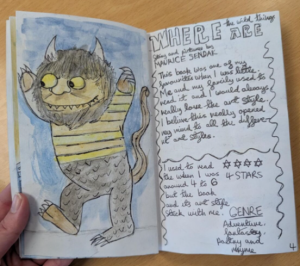 WHERE the wild things ARE
Story and pictures by
MAURICE SENDAK
This book was one of my
favourites when I was little
Me and my family used to
read it and I would always
really love the art style.
I believe this really opened
my mind to all the different
art styles.
I used to read
the when I was 4 STARS
around 4 to 6
but the book
and its art style
stick with me. GENRE
Adventure,
fantasy,
poetry and
rhyme
4